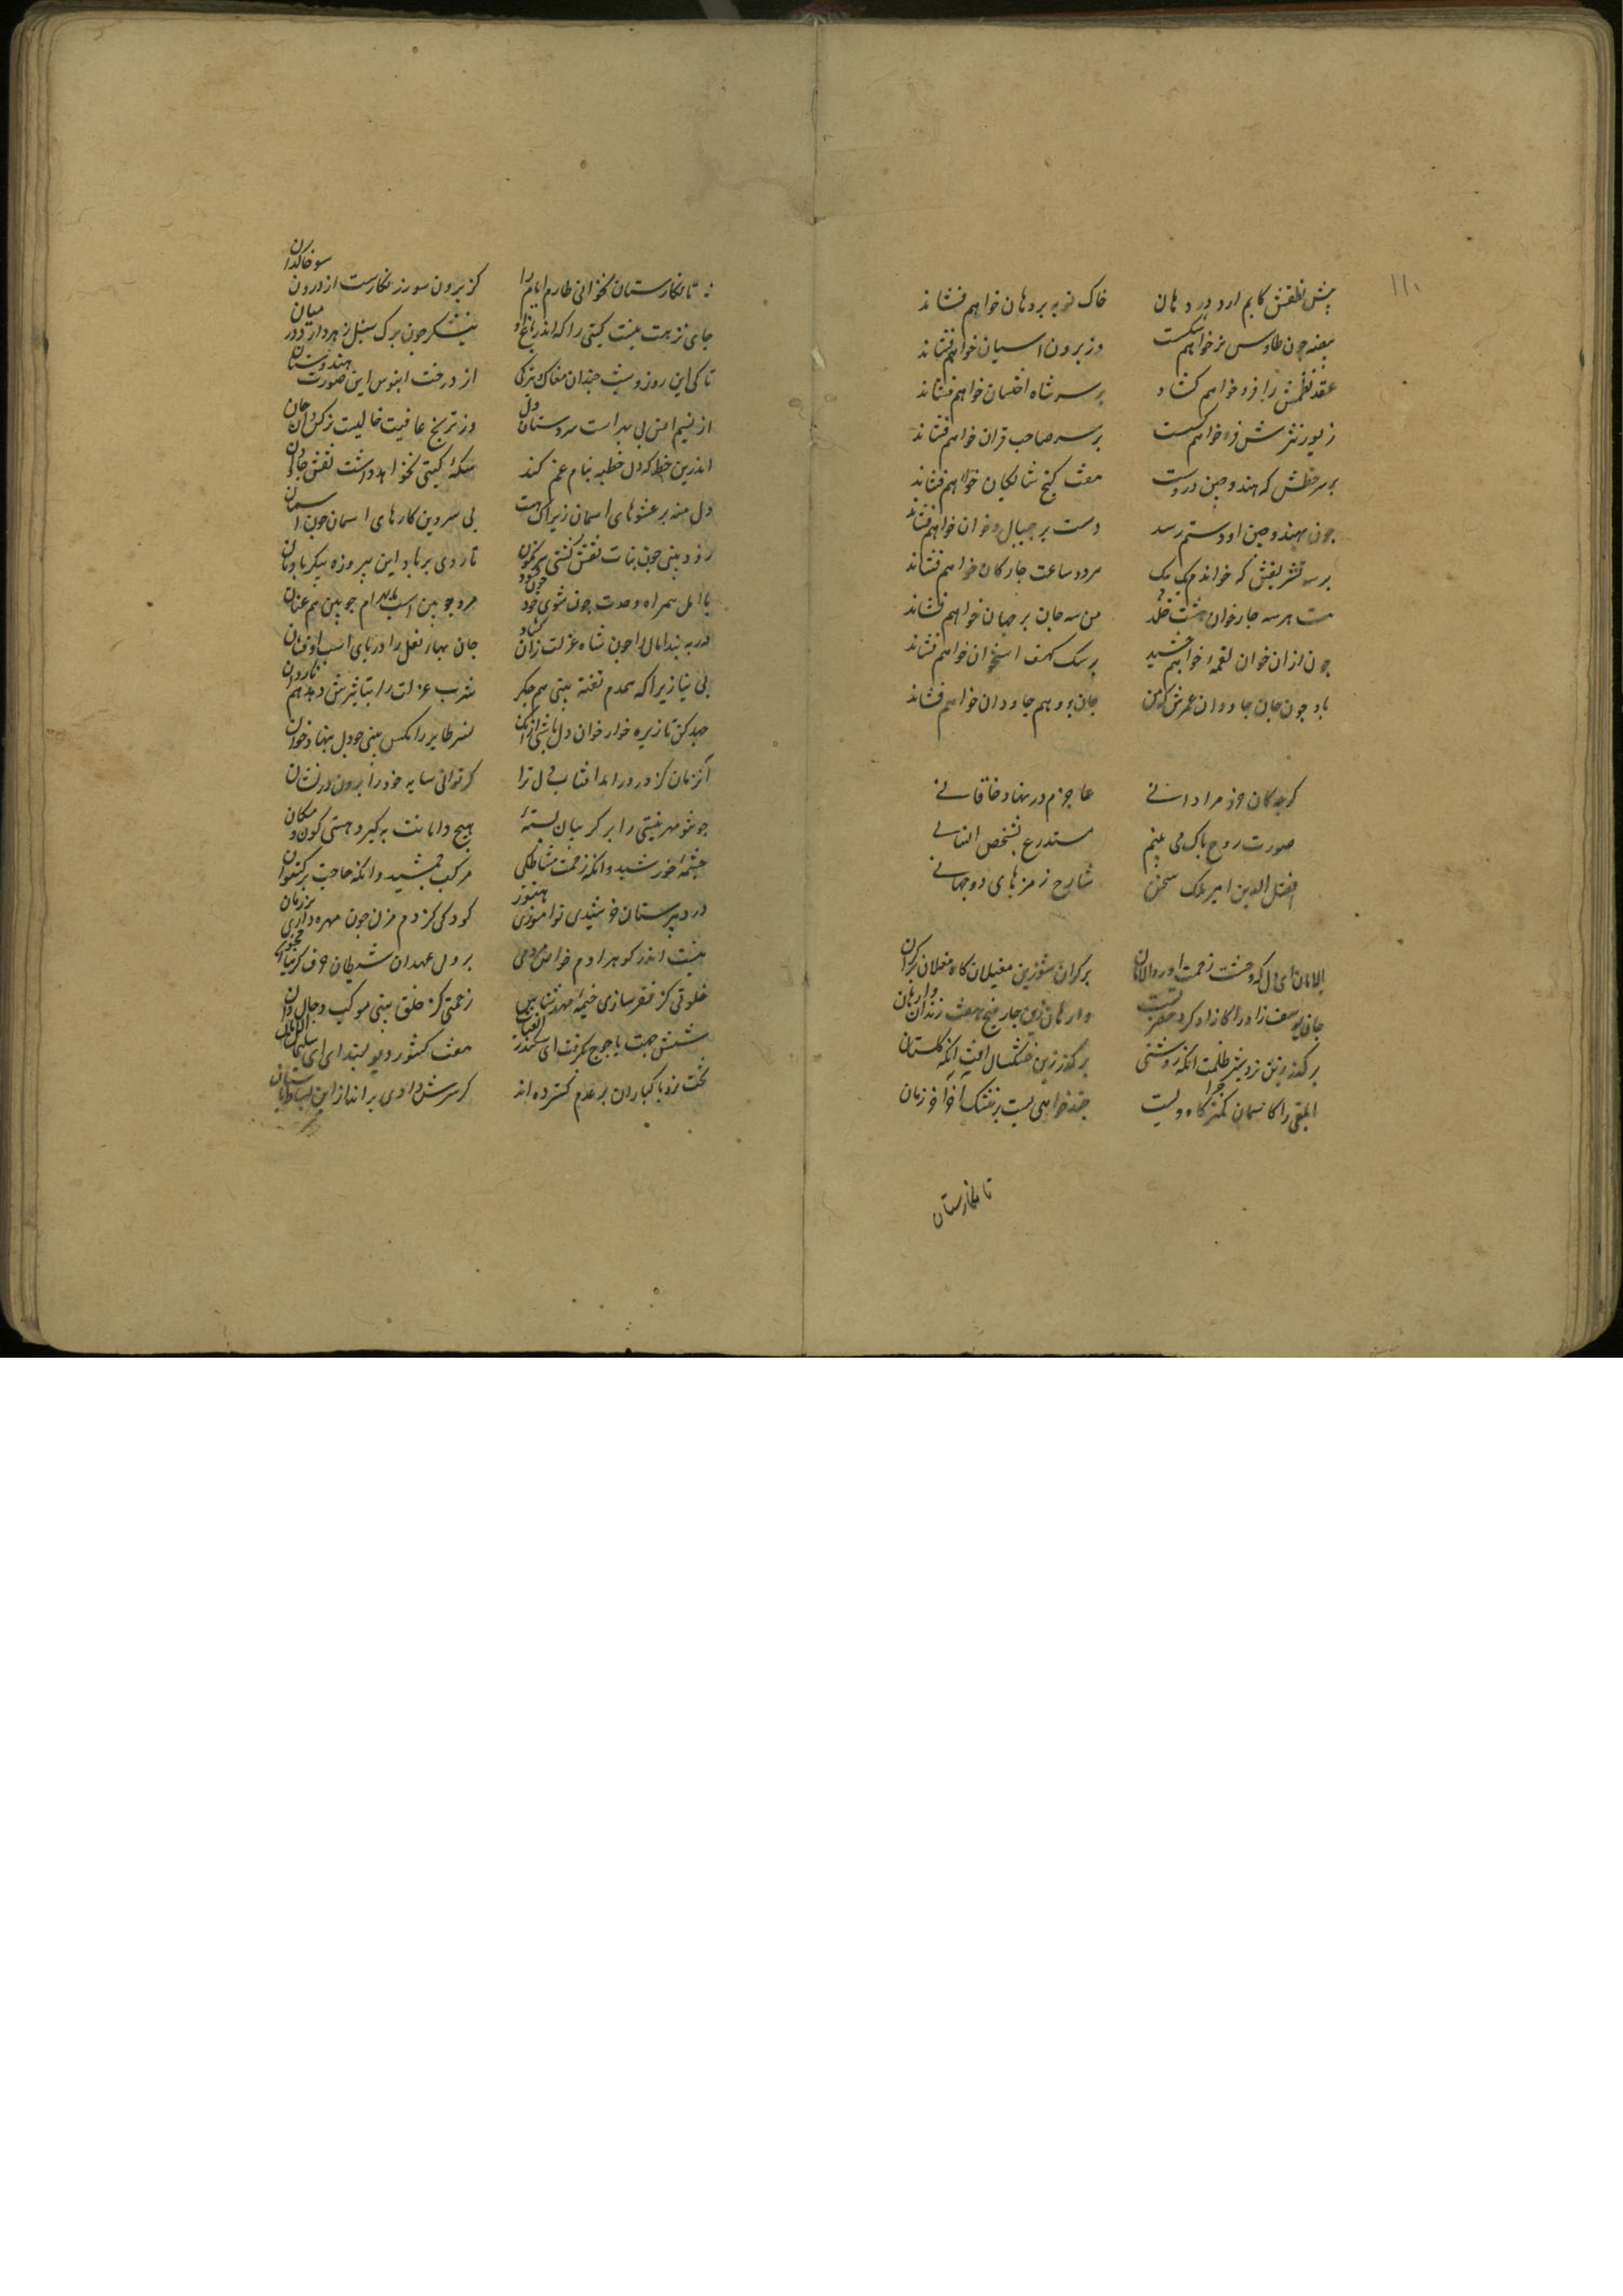 ۱۱۰
پیش نطقش کابم ارد در دهان خاک توبه بر دهان خواهم فشاند
بیضه چون طاوس نر خواهم شکست وز برون اسیان خواهم فشاند
عقد نظمش را فرو خواهم کشاد بر سر شاه اخستان خواهم فشاند
زیور نثرش فرو خواهم کسست بر سر صاحب قران خواهم فشاند
بر سر خطش که هند و چین دروست هفت کنج شایکان خواهم فشاند
چون بهند و چین او دستم رسد دست بر چیبال و خان خواهم فشاند
بر سه تشریفش که خواند یک بیک هر دو ساعت چار کان خواهم فشاند
هست هر سه چار خوان هشت خلد من سه جان بر جهان خواهم فشاند
چون ازان خوان لقمهٔ خواهم چشید بر سک کهف استخوان خواهم فشاند
باد چون جان جاودان عمرش که من جان برو هم جاودان خواهم فشاند
کرچکان خرد مرا دانی عاجزم در نهاد خاقانی
صورت روح باک می بینم مستدرع بشخص انسانی
افضل الدین امیر ملک سخن شارح رمزهای دو جهانی
الامان ای دل که وحشت زحمت اورد الامان بر کران شو زین مغیلان کاه غولان بر کران
جان یوسف زاد را کازاد کرد حضرتست وارهان زین چار میخ هفت زندان وارهان
بر کذر زین تردیس ظلمت اینک روشنی بر کذر زین خشکسال افت اینک کلستان
ابلقی را کاسمان کمتر چراکاه ویست چند خواهی بست بر خشک اخور اخر زمان
تا نکارستان
تا نکارستان نخوانی طارم ایام را کز برون سو زرنکارست از درون سو خاکدان
جای نزهت نیست کیتی را که اندر باغ او نیشکر چون برک سنبل زهر دارد در میان
تا کی این روز و شب چندان مغاک و تیرکی از درخت ابنوس این صورت هندوستان
از نسیم امن بی بهر است سروستان دل وز ترنج عافیت خالیست نرکسدان جان
اندرین خط که دل خطبه بنام غم کند سکهٔ کیتی نخواهد داشت نقش جاودان
دل منه بر عشوهای اسمان زیراک هست بی سر و بن کارهای اسمان چون اسمان
زود بینی چون بنات نعش کشتی سرنکون تا روی بر باد این پیروزه پیکر بادبان
با امل همراه وحدت چون شوی چون خود مرد چوبین اسب با بهرام چوبین هم عنان
جان بهای نعل را در پای اسب او فشان
بی نیازی را که همدم تفته بینی هم جکر شرب عزلت را تباشیرش ده هم ناردان
جهد کن تا زیره خوار خوان دل باشی از انک نسر طایر را مکس بینی چو دل بنهاد خوان
انزمان کز در دراید افتاب دل ترا کر توانی سایه خود را برون در نشان
چو تو مهر نیستی را بر کریبان بستهٔ هیچ دامانت نکیرد هستی کون و مکان
چشمهٔ خورشید وانکه زحمت مشاطکی مرکب جمشید وانکه حاجت برکستوان
در دبیرستان خرسندی نواموزی هنوز کودکی کن دم مزن چون مهره داری بر زبان
نیست اندر کوهر ادم خواص مردمی بر ولی عهدان شیطان حرف کرمنا مخوان
خلوتی کز فقر سازی خیمهٔ مهدی شناس زحمتی کز خلق بینی موکب دجال دان
شش جهت یاجوج بکرفت ای سکندر الغیاث هفت کشور دیو بستد ای سلیمان الامان
تخت نرد باکبازان بر عدم کسترده اند کر سرش داری بر انداز این بساط باستان